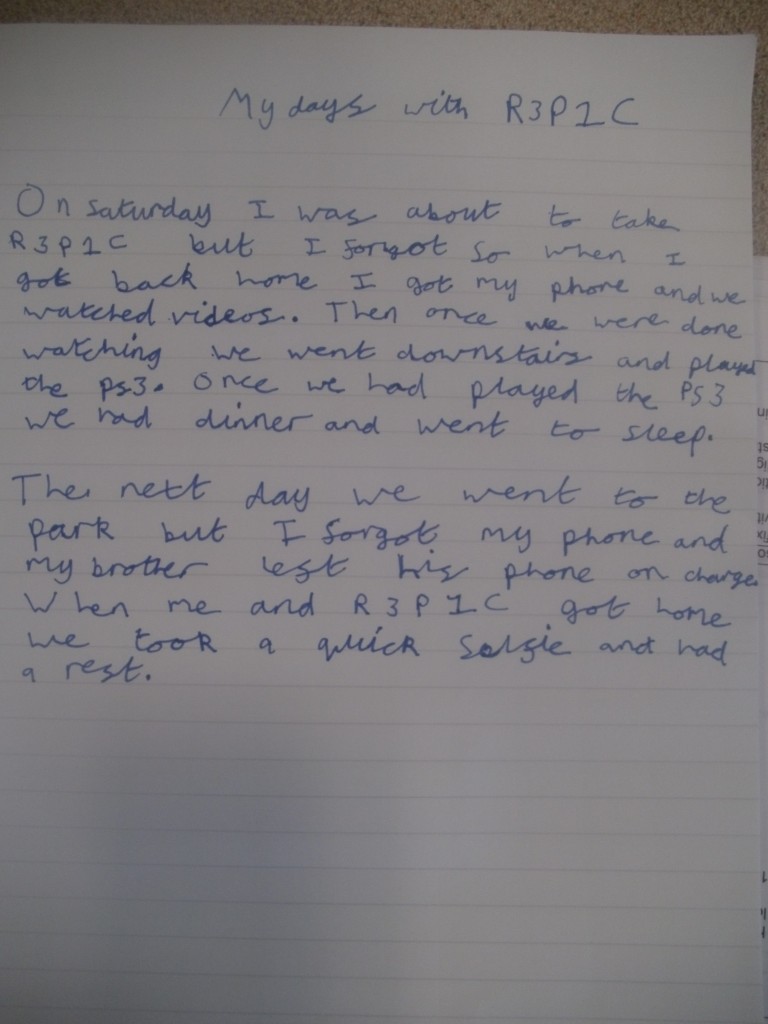 My days with R3P1C
On saturday I was about to take
R3P1C but I forgot so when I
got back home I got my phone and we
watched videos. Then once we were done
watching we went downstairs and played
the ps3. Once we had played the PS3
we had dinner and went to sleep.
The next day we went to the
park but I forgot my phone and
my brother left his phone on charge
When me and R3P1C got home
we took a quick Selfie and had
a rest.